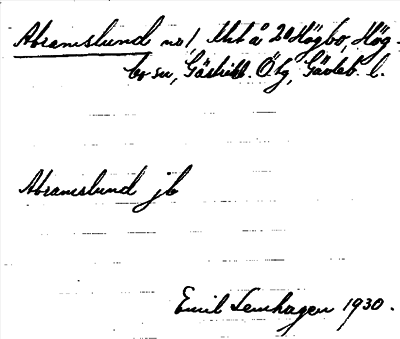 Abramslund no 1, lht å 20 Högbo, Hög-
bo sn, Gästrikl. Ötg, Gävleb. l.
Abramslund jb
Emil Lenhagen 1930.